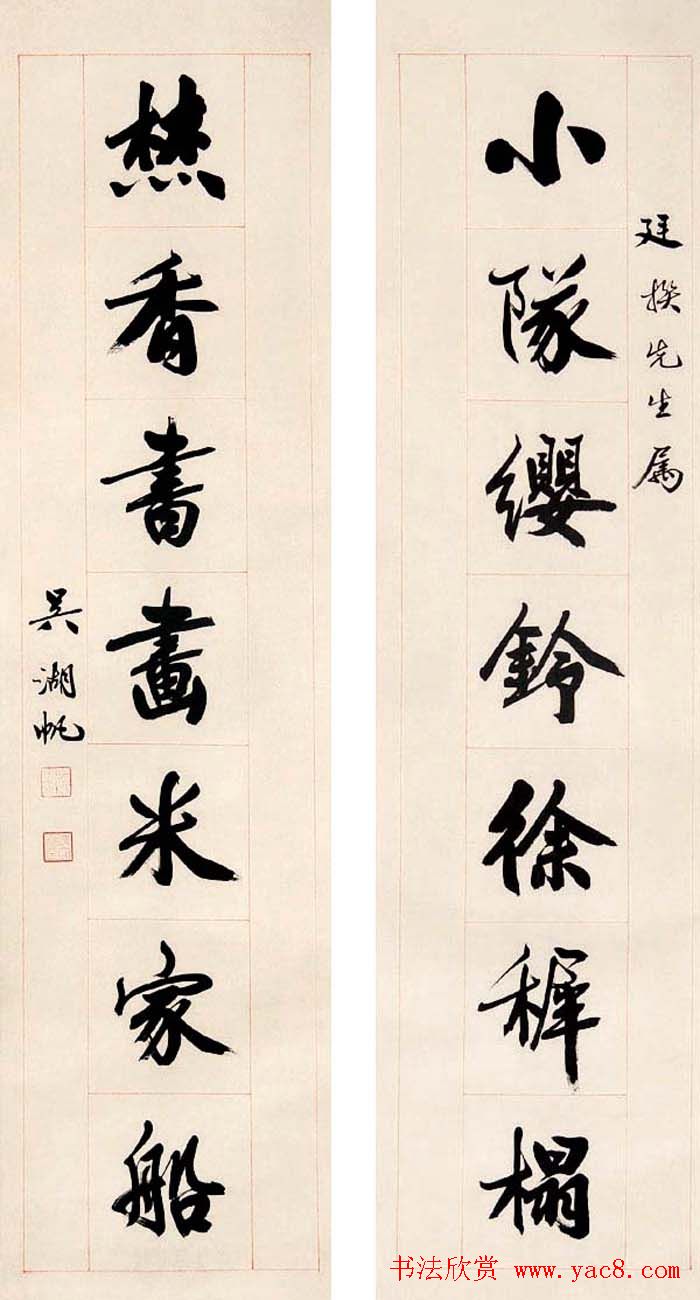 廷揆先生属
小隊纓鈴徐稺榻
焚香書畫米家船
吳湖帆
书法欣赏 www.yac8.com